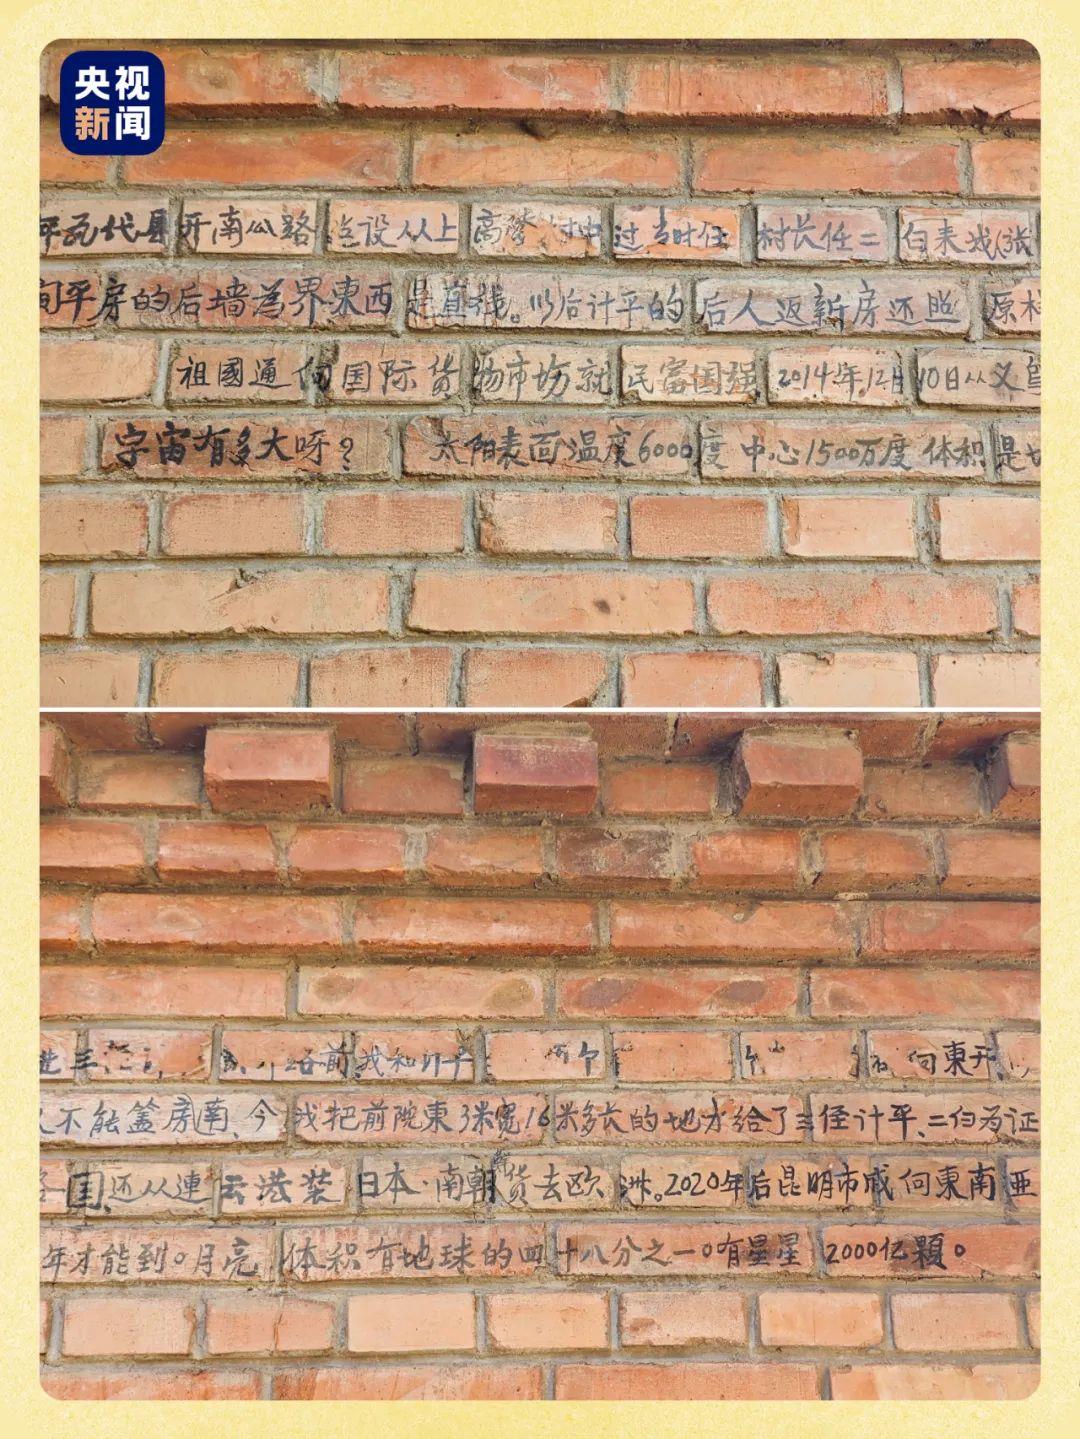 央视
新闻
开南公路 当设从上 高 村中 过当时任 村长任二
平房的后墙為界東西是直线。以后计平的后人返新房还照原
祖國通向国际货物市场就民富国强 2014年12月10日从义
宇宙有多大呀？ 太阳表面温度6000度中心1500万度体积是
前我和 向東开
不能盖房南、今我把前院東3米宽16米多长的地方给了三径计平、二份为证
国还从連云港装日本·南朝鲜货去欧洲。2020年后昆明市成向東南亚
年才能到。月亮体积有地球的四十八分之一。有星星2000亿顆。